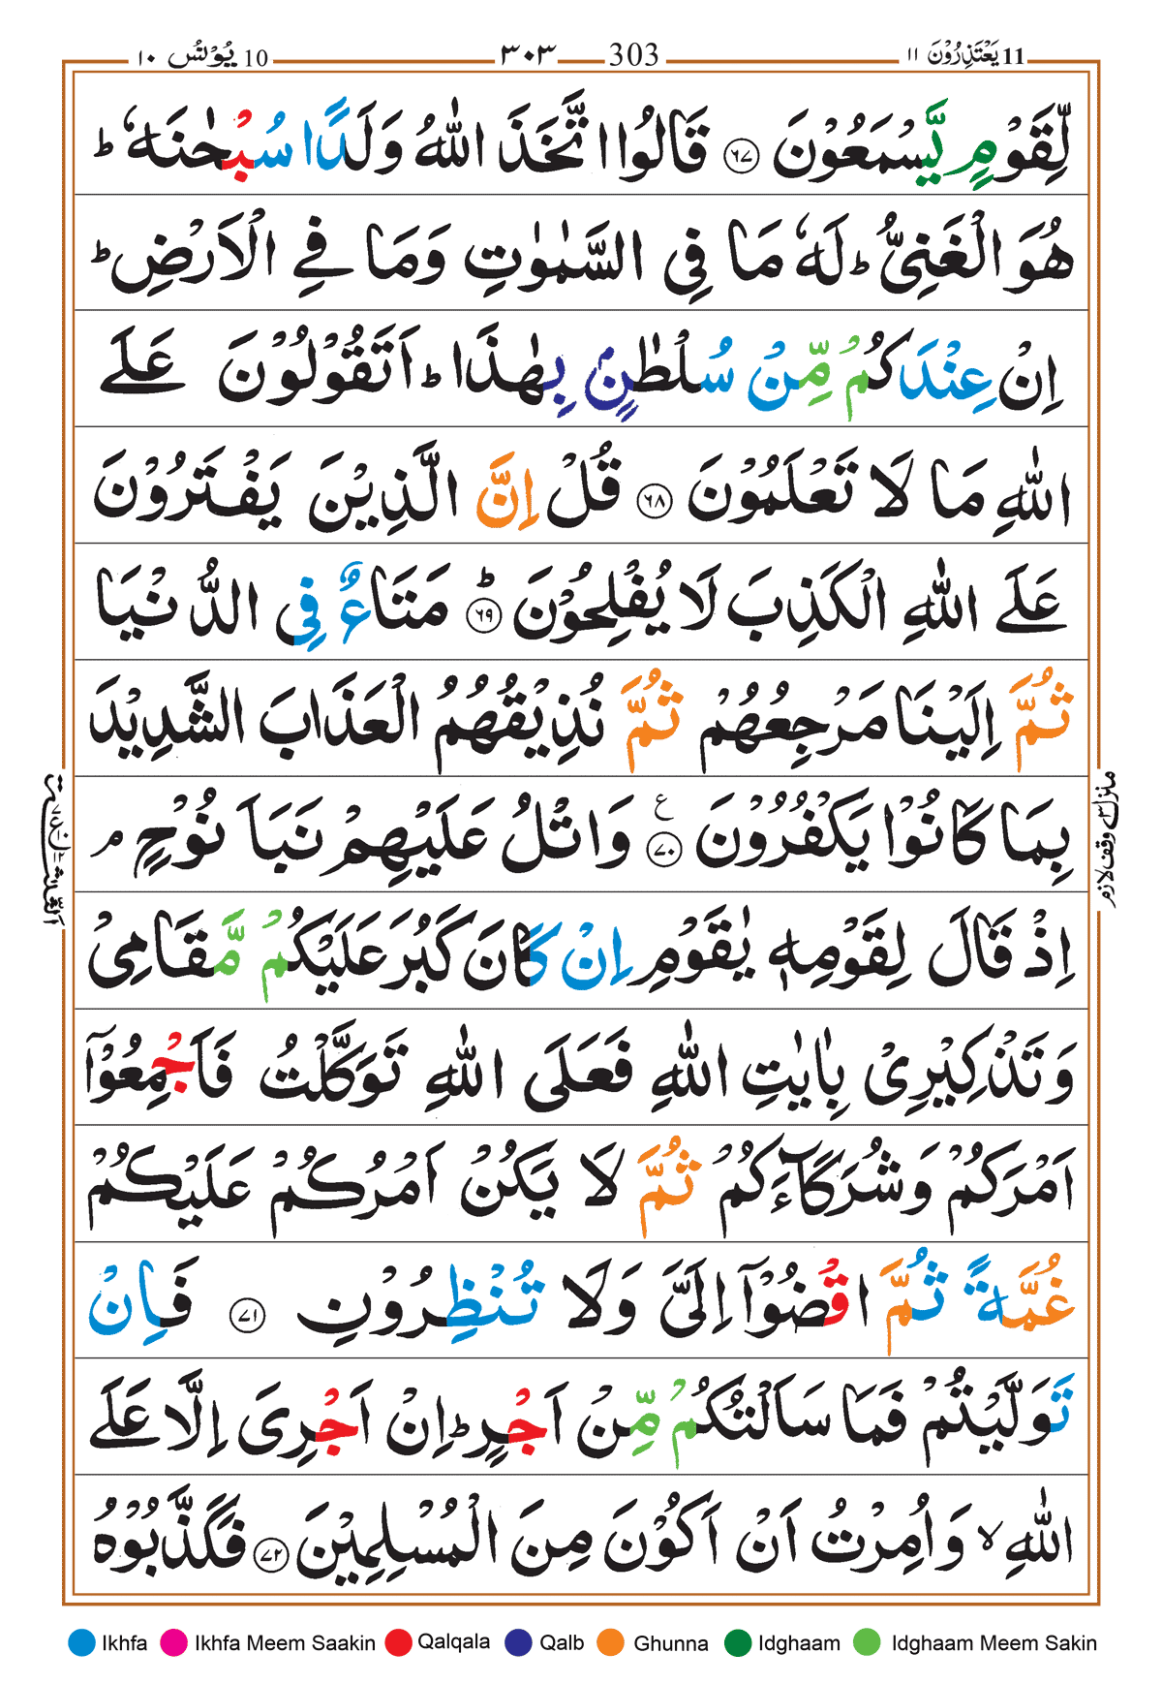 11 یَعْتَذِرُوْنَ ۱۱ 303 ۳۰۳ 10 یُوْنُس ۱۰
لِّقَوْمٍ یَّسْمَعُوْنَ ﴿۶۷﴾ قَالُوا اتَّخَذَ اللّٰهُ وَلَدًا سُبْحٰنَهٗ ؕ
هُوَ الْغَنِیُّ ؕ لَهٗ مَا فِی السَّمٰوٰتِ وَمَا فِی الْاَرْضِ ؕ
اِنْ عِنْدَكُمْ مِّنْ سُلْطٰنٍۭ بِهٰذَا ؕ اَتَقُوْلُوْنَ عَلَی
اللّٰهِ مَا لَا تَعْلَمُوْنَ ﴿۶۸﴾ قُلْ اِنَّ الَّذِیْنَ یَفْتَرُوْنَ
عَلَی اللّٰهِ الْكَذِبَ لَا یُفْلِحُوْنَ ﴿۶۹﴾ؕ مَتَاعٌ فِی الدُّنْیَا
ثُمَّ اِلَیْنَا مَرْجِعُهُمْ ثُمَّ نُذِیْقُهُمُ الْعَذَابَ الشَّدِیْدَ
بِمَا كَانُوْا یَكْفُرُوْنَ ﴿۷۰﴾ ع وَاتْلُ عَلَیْهِمْ نَبَاَ نُوْحٍ ۘ
اِذْ قَالَ لِقَوْمِهٖ یٰقَوْمِ اِنْ كَانَ كَبُرَ عَلَیْكُمْ مَّقَامِیْ
وَتَذْكِیْرِیْ بِاٰیٰتِ اللّٰهِ فَعَلَی اللّٰهِ تَوَكَّلْتُ فَاَجْمِعُوْۤا
اَمْرَكُمْ وَشُرَكَآءَكُمْ ثُمَّ لَا یَكُنْ اَمْرُكُمْ عَلَیْكُمْ
غُمَّةً ثُمَّ اقْضُوْۤا اِلَیَّ وَلَا تُنْظِرُوْنِ ﴿۷۱﴾ فَاِنْ
تَوَلَّیْتُمْ فَمَا سَاَلْتُكُمْ مِّنْ اَجْرٍ ؕ اِنْ اَجْرِیَ اِلَّا عَلَی
اللّٰهِ ۙ وَاُمِرْتُ اَنْ اَكُوْنَ مِنَ الْمُسْلِمِیْنَ ﴿۷۲﴾ فَكَذَّبُوْهُ
منزل ۳ وقف لازم
Ikhfa Ikhfa Meem Saakin Qalqala Qalb Ghunna Idghaam Idghaam Meem Sakin